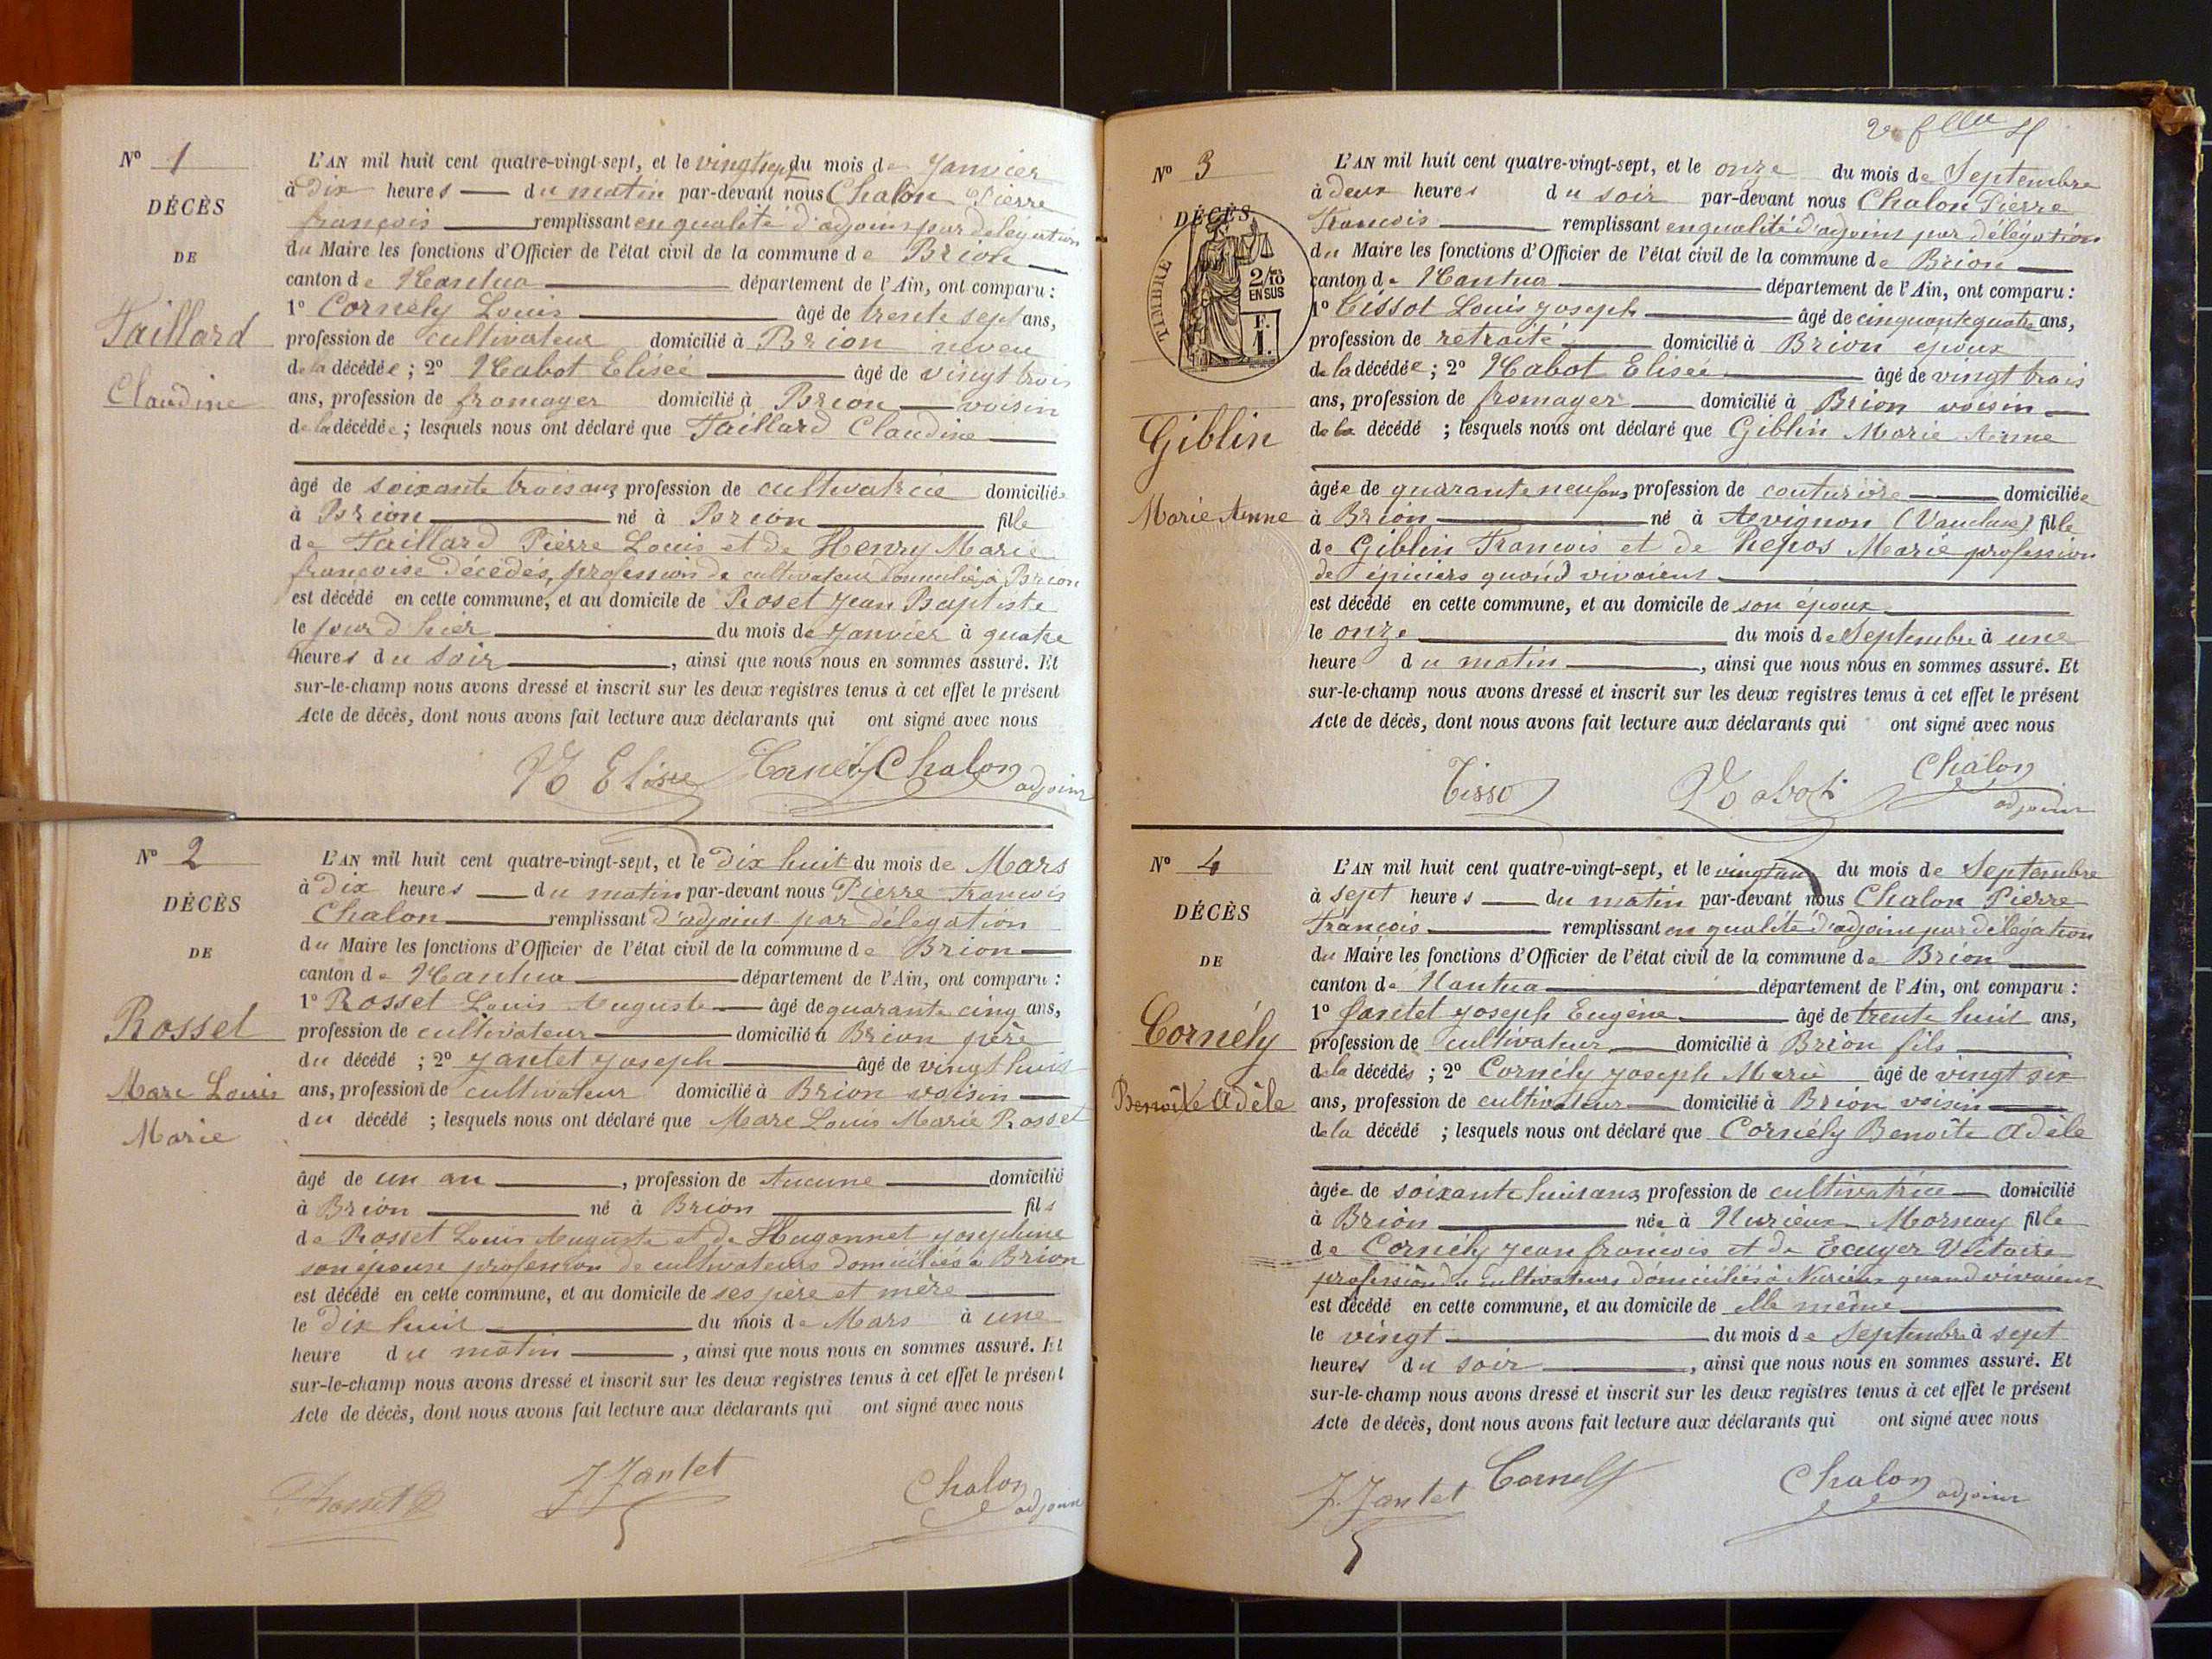 N° 1
DÉCÈS
DE
Taillard
Claudine
L'AN mil huit cent quatre-vingt-sept, et le vingt sept du mois de Janvier
à Dix heures du matin par-devant nous Chalon Pierre
françois remplissant en qualité d'adjoint par délégation
du Maire les fonctions d'Officier de l'état civil de la commune de Brion
canton de Nantua département de l'Ain, ont comparu :
1° Cornély Louis âgé de trente sept ans,
profession de cultivateur domicilié à Brion neveu
de la décédée ; 2° Nabot Elisée âgé de vingt trois
ans, profession de fromager domicilié à Brion voisin
de la décédée ; lesquels nous ont déclaré que Taillard Claudine
âgé de soixante trois ans profession de cultivatrice domiciliée
à Brion né à Brion fille
de Taillard Pierre Louis et de Henry Marie
françoise décédés, profession de cultivateur domiciliés à Brion
est décédé en cette commune, et au domicile de Roset Jean Baptiste
le jour d'hier du mois de Janvier à quatre
heures du soir, ainsi que nous nous en sommes assuré. Et
sur-le-champ nous avons dressé et inscrit sur les deux registres tenus à cet effet le présent
Acte de décès, dont nous avons fait lecture aux déclarants qui ont signé avec nous
N Elisée Cornély Chalon
adjoint
N° 2
DÉCÈS
DE
Rosset
Marc Louis
Marie
L'AN mil huit cent quatre-vingt-sept, et le Dix huit du mois de Mars
à Dix heures du matin par-devant nous Pierre francois
Chalon remplissant d'adjoint par délégation
du Maire les fonctions d'Officier de l'état civil de la commune de Brion
canton de Nantua département de l'Ain, ont comparu :
1° Rosset Louis Auguste âgé de quarante cinq ans,
profession de cultivateur domicilié à Brion père
du décédé ; 2° Jantet Joseph âgé de vingt huit
ans, profession de cultivateur domicilié à Brion voisin
du décédé ; lesquels nous ont déclaré que Marc Louis Marie Rosset
âgé de un an, profession de Aucune domicilié
à Brion né à Brion fils
de Rosset Louis Auguste et de Hugonnet Josephine
son épouse profession de cultivateurs domiciliés à Brion
est décédé en cette commune, et au domicile de ses père et mère
le Dix huit du mois de Mars à une
heure du matin, ainsi que nous nous en sommes assuré. Et
sur-le-champ nous avons dressé et inscrit sur les deux registres tenus à cet effet le présent
Acte de décès, dont nous avons fait lecture aux déclarants qui ont signé avec nous
Rosset J Jantet Chalon
adjoint
N° 3
DÉCÈS
TIMBRE
2/10
EN SUS
F.
1.
Giblin
Marie Anne
L'AN mil huit cent quatre-vingt-sept, et le onze du mois de Septembre
à deux heures du soir par-devant nous Chalon Pierre
francois remplissant en qualité d'adjoint par délégation
du Maire les fonctions d'Officier de l'état civil de la commune de Brion
canton de Nantua département de l'Ain, ont comparu :
1° Tissot Louis Joseph âgé de cinquante quatre ans,
profession de retraité domicilié à Brion époux
de la décédée ; 2° Nabot Elisée âgé de vingt trois
ans, profession de fromager domicilié à Brion voisin
de la décédé ; lesquels nous ont déclaré que Giblin Marie Anne
âgée de quarante neuf ans profession de couturière domiciliée
à Brion né à Avignon (Vaucluse) fille
de Giblin Francois et de Repos Marie profession
de épiciers quand vivaient
est décédé en cette commune, et au domicile de son époux
le onze du mois de Septembre à une
heure du matin, ainsi que nous nous en sommes assuré. Et
sur-le-champ nous avons dressé et inscrit sur les deux registres tenus à cet effet le présent
Acte de décès, dont nous avons fait lecture aux déclarants qui ont signé avec nous
Tissot Nabot Chalon
adjoint
N° 4
DÉCÈS
DE
Cornély
Benoîte Adèle
L'AN mil huit cent quatre-vingt-sept, et le vingt un du mois de Septembre
à sept heures du matin par-devant nous Chalon Pierre
Francois remplissant en qualité d'adjoint par délégation
du Maire les fonctions d'Officier de l'état civil de la commune de Brion
canton de Nantua département de l'Ain, ont comparu :
1° Jantet Joseph Eugène âgé de trente huit ans,
profession de cultivateur domicilié à Brion fils
de la décédés ; 2° Cornély Joseph Marie âgé de vingt six
ans, profession de cultivateur domicilié à Brion voisin
de la décédé ; lesquels nous ont déclaré que Cornély Benoîte Adèle
âgée de soixante huit ans profession de cultivatrice domicilié
à Brion née à Nurieux Mornay fille
de Cornély Jean francois et de Ecuyer
profession de cultivateurs domiciliés à Nurieux quand vivaient
est décédé en cette commune, et au domicile de elle même
le vingt du mois de Septembre à sept
heures du soir, ainsi que nous nous en sommes assuré. Et
sur-le-champ nous avons dressé et inscrit sur les deux registres tenus à cet effet le présent
Acte de décès, dont nous avons fait lecture aux déclarants qui ont signé avec nous
J. Jantet Cornély Chalon adjoint